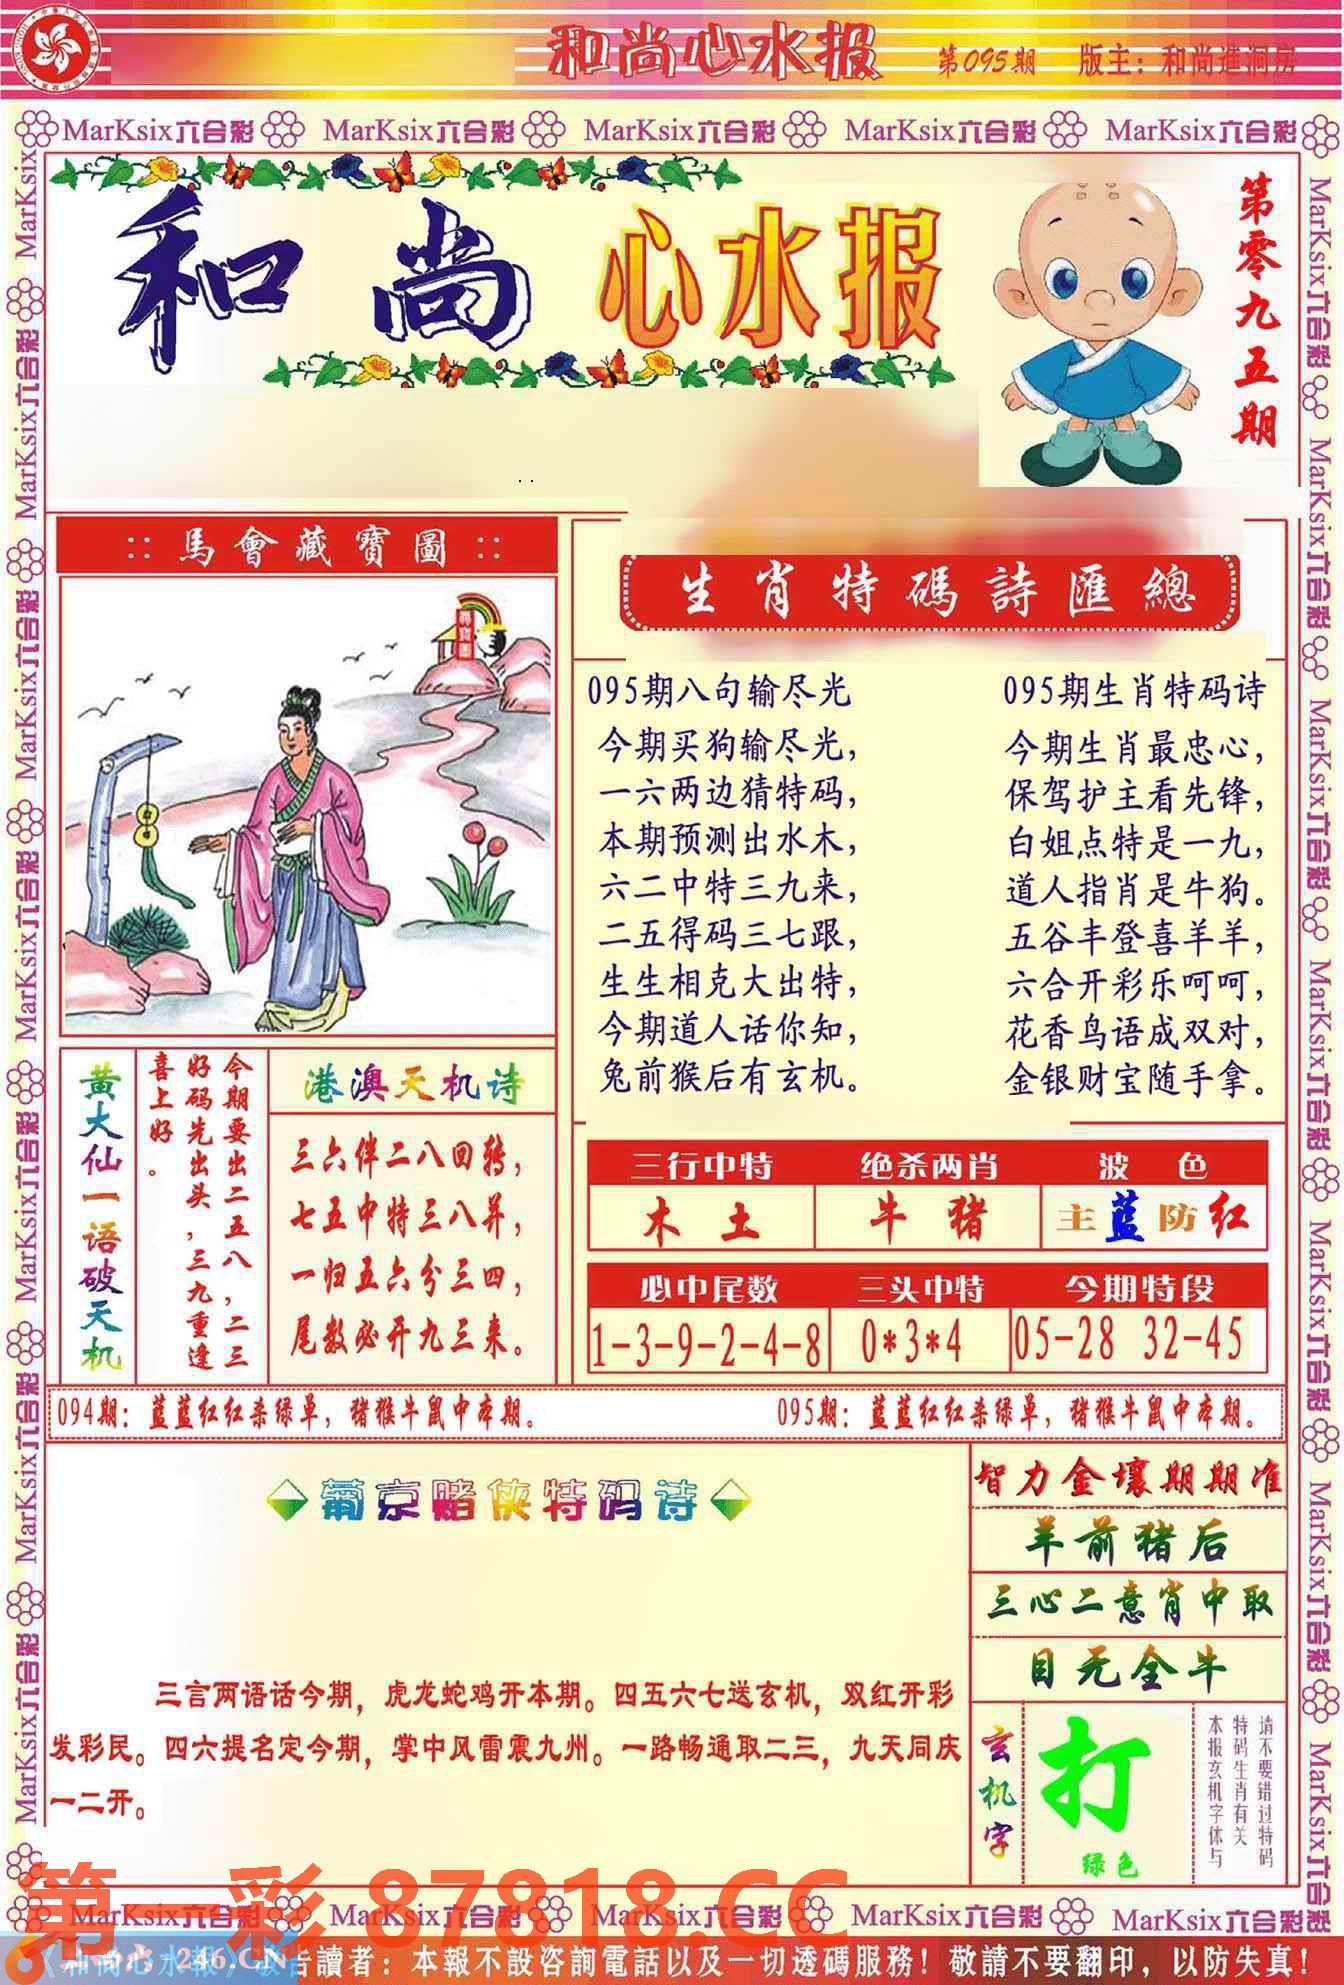 和尚心水报
第095期
版主：和尚進洞房
MarKsix六合彩 MarKsix六合彩 MarKsix六合彩 MarKsix六合彩 MarKsix六合彩
和尚心水报
第零九五期
:: 馬會藏寶圖 ::
生肖特碼詩匯總
095期八句输尽光
今期买狗输尽光，
一六两边猜特码，
本期预测出水木，
六二中特三九来，
二五得码三七跟，
生生相克大出特，
今期道人话你知，
兔前猴后有玄机。
095期生肖特码诗
今期生肖最忠心，
保驾护主看先锋，
白姐点特是一九，
道人指肖是牛狗。
五谷丰登喜羊羊，
六合开彩乐呵呵，
花香鸟语成双对，
金银财宝随手拿。
黄大仙一语破天机
今期要出二五八，二三
好码先出头，三九重逢
喜上好。
港澳天机诗
三六伴二八回转，
七五中特三八并，
一归五六分三四，
尾数必开九三来。
三行中特 绝杀两肖 波色
木土 牛猪 主蓝防红
必中尾数 三头中特 今期特段
1-3-9-2-4-8 0*3*4 05-28 32-45
094期：蓝蓝红红杀绿单，猪猴牛鼠中本期。
095期：蓝蓝红红杀绿单，猪猴牛鼠中本期。
葡京赌侠特码诗
三言两语话今期，虎龙蛇鸡开本期。四五六七送玄机，双红开彩
发彩民。四六提名定今期，掌中风雷震九州。一路畅通取二三，九天同庆
一二开。
智力金壤期期准
羊前猪后
三心二意肖中取
目无全牛
玄机字
打
绿色
请不要错过特码
特码生肖有关
本报玄机字体与
第一彩 87818.CC
MarKsix六合彩 MarKsix六合彩 MarKsix六合彩 MarKsix六合彩 MarKsix六合彩
246.CN
《和尚心水報》敬告讀者：本報不設咨詢電話以及一切透碼服務！敬請不要翻印，以防失真！